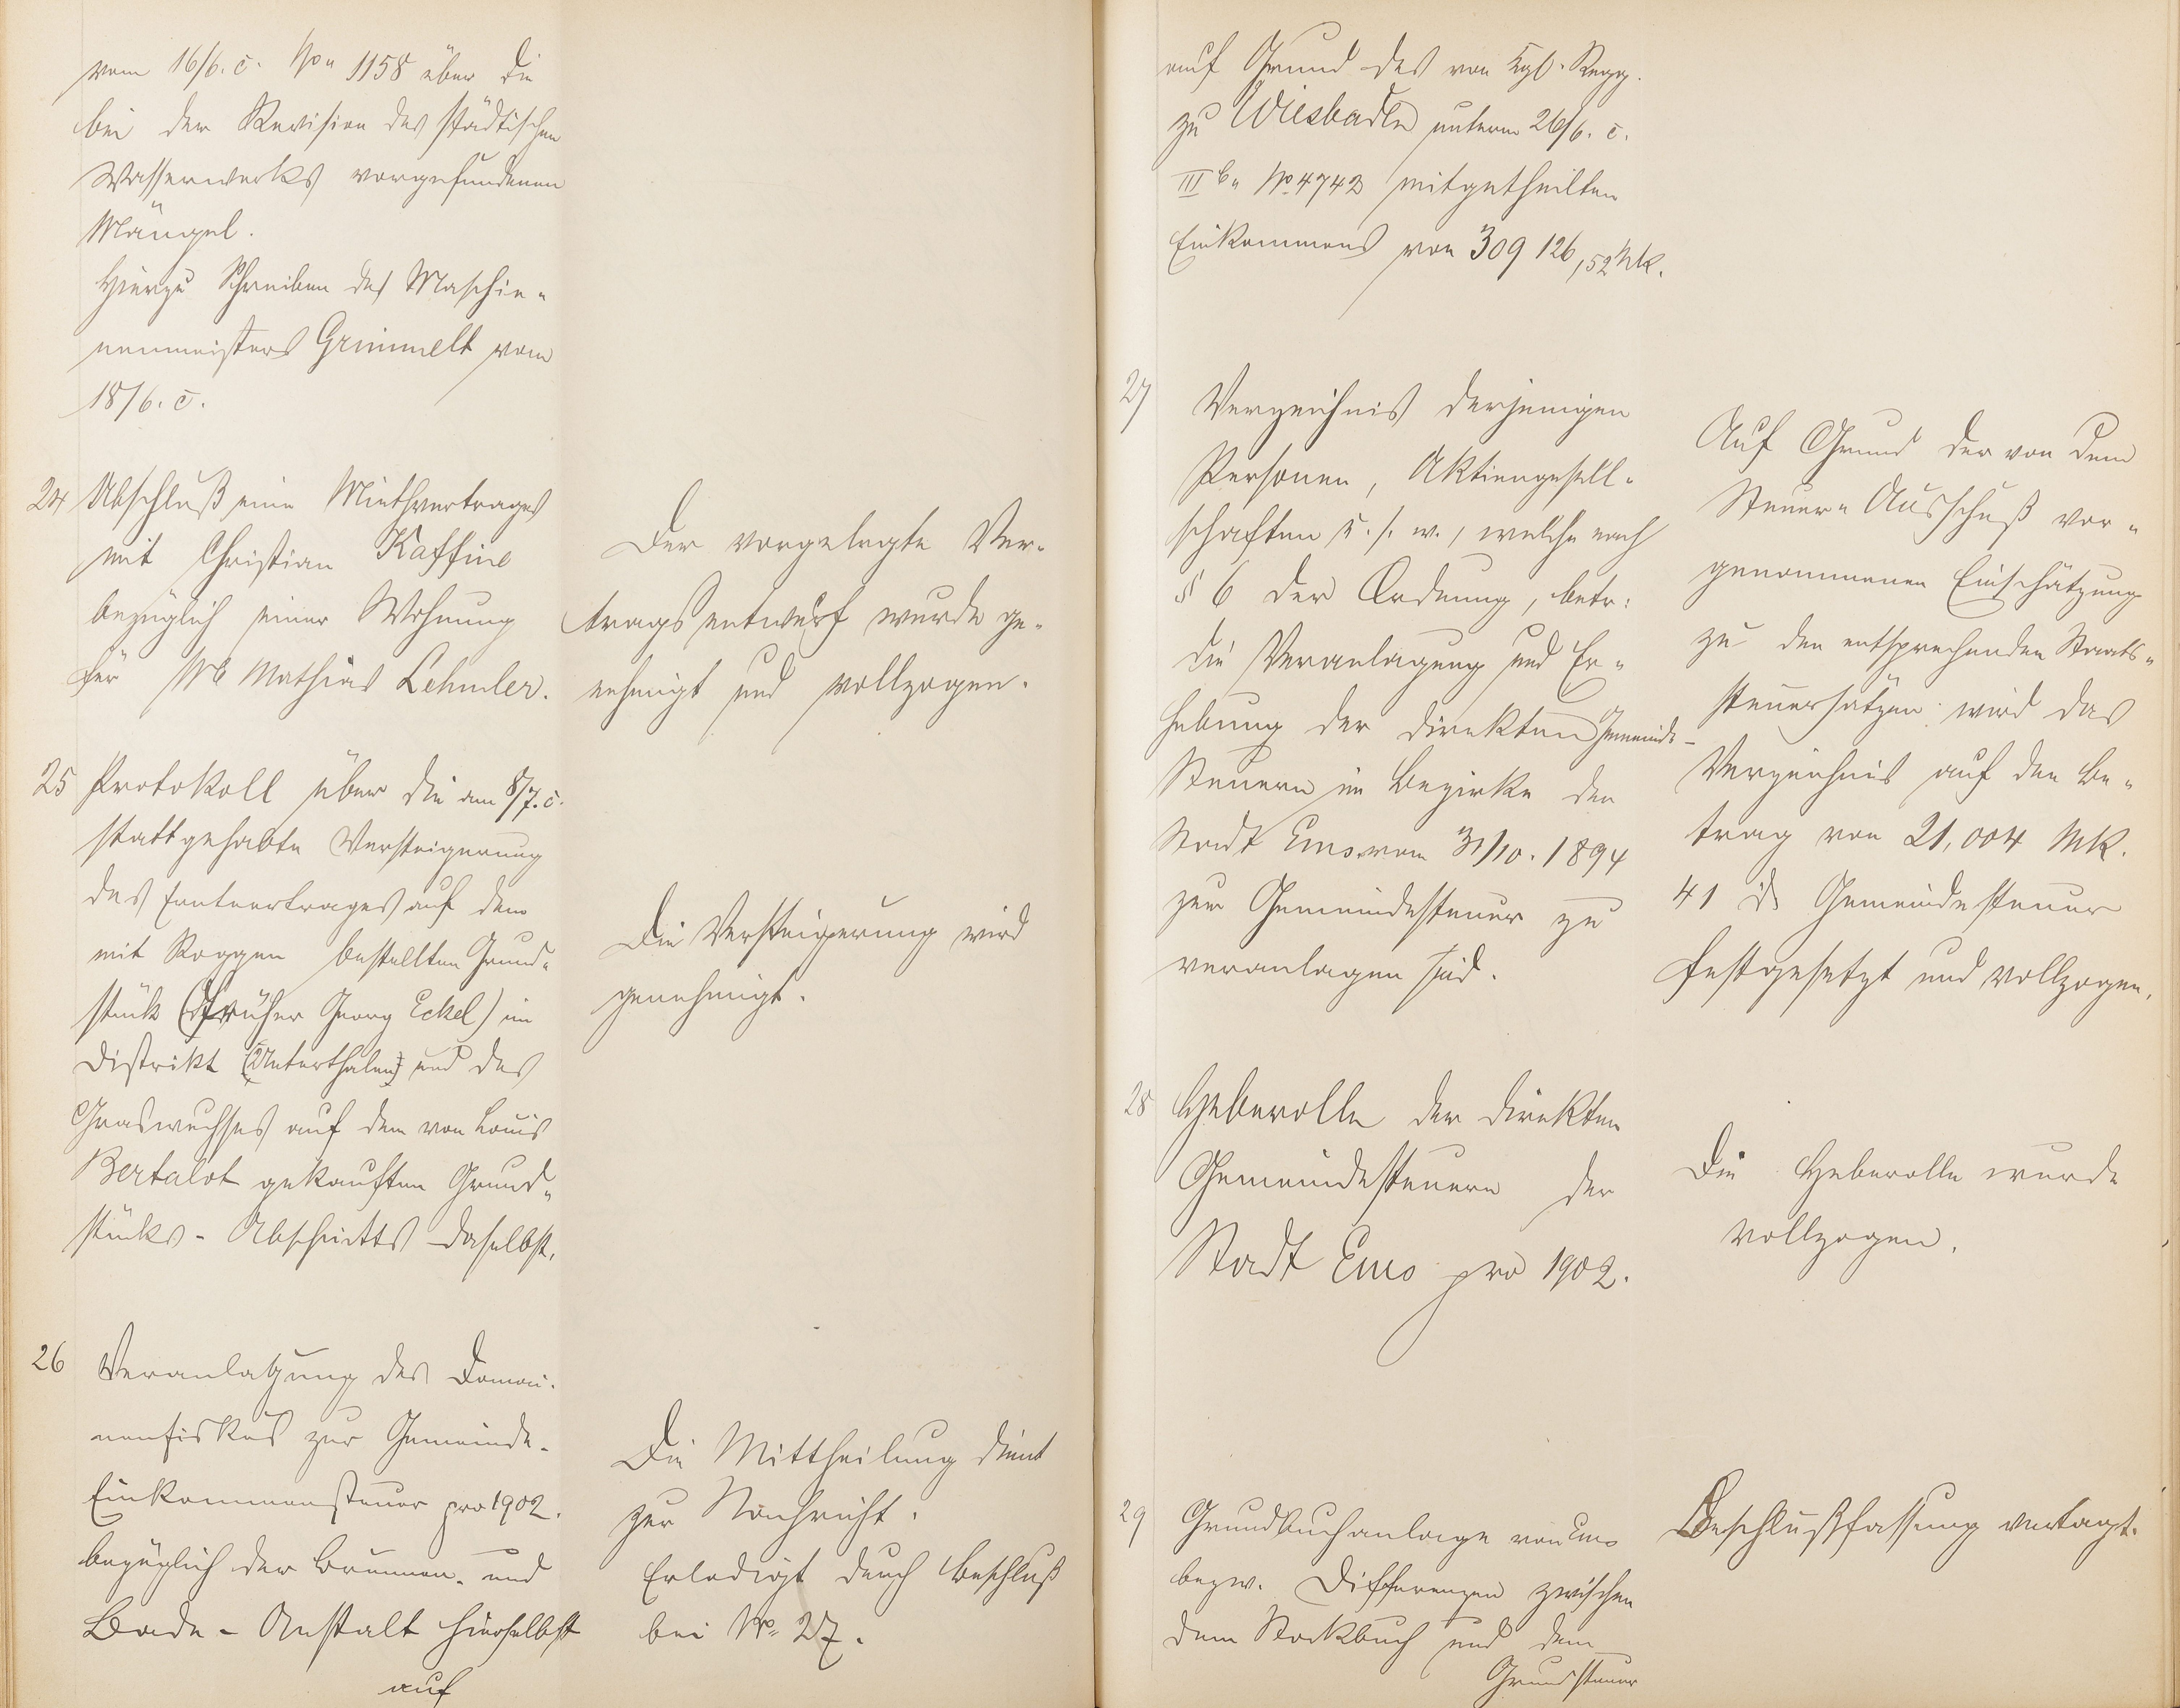 vom 16/6. c. No 1158 über die
bei der Revision des städtischen
Wasserwerks vorgefundenen
Mängel.
Hierzu Schreiben des Maschi-
nenmeisters Grimmelt vom
18/6. c.
24 Abschluß eine Miethvertrages
mit Christian Kaffine
bezüglich seiner Wohnung
für Mathias Lehmler.
Der vorgelegte Ver-
tragsentwurf wurde ge-
nehmigt und vollzogen.
25 Protokoll über die am 8/7. c.
stattgehabte Versteigerung
des Ernteertrages auf dem
mit Roggen bestellten Grund-
stück (früher Georg Eckel) im
Distrikt (Unterthalen) und des
Graswuchses auf dem von Louis
Bertalot gekauften Grund-
stücks-Abschnitts daselbst.
Die Versteigerung wird
genehmigt.
26 Veranlagung des Domai-
nenfiskus zur Gemeinde-
Einkommensteuer pro 1902.
bezüglich der Brunnen- und
Bade-Anstalt hierselbst
auf
Die Mittheilung dient
zur Nachricht.
Erledigt durch Beschluß
bei No 27.
auf Grund des von Kgl. Regg.
zu Wiesbaden unterm 26/6. c.
III b. No 4742 mitgetheilten
Einkommens von 309 126,52 Mk.
27 Verzeichnis derjenigen
Personen, Aktiengesell-
schaften u. s. w., welche nach
§ 6 der Ordnung, betr:
die Veranlagung und Er-
hebung der direkten Gemeinde-
Steuern im Bezirke der
Stadt Ems vom 31/10. 1894
zur Gemeindesteuer zu
veranlagen sind.
Auf Grund der von dem
Steuer-Ausschuß vor-
genommenen Einschätzung
zu den entsprechenden Staats-
steuersätzen wird das
Verzeichnis auf den Be-
trag von 21,004 Mk.
41 ₰ Gemeindesteuer
festgesetzt und vollzogen.
28 Heberolle der direkten
Gemeindesteuern der
Stadt Ems pro 1902.
Die Heberolle wurde
vollzogen.
29 Grundbuchanlage von Ems
bezw. Differenzen zwischen
dem Stockbuch und dem
Grundsteuer
Beschlußfassung vertagt.